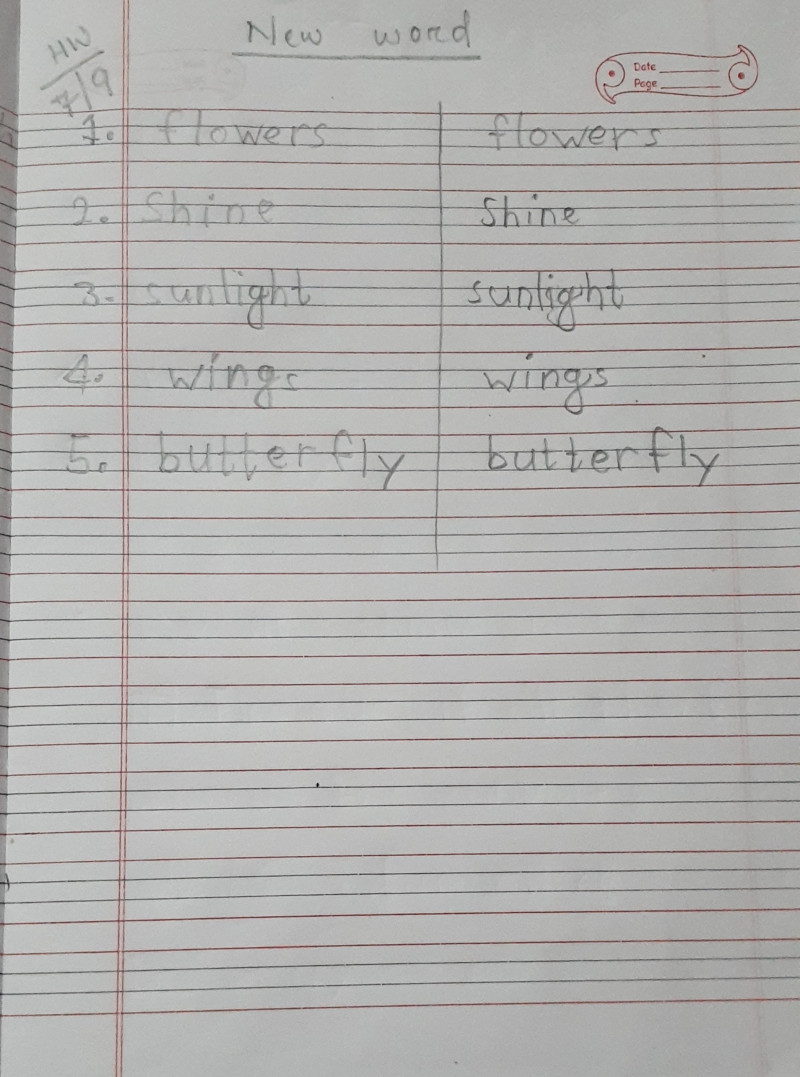 New word
HW
7/9
Date
Page
1. flowers flowers
2. Shine Shine
3. sunlight sunlight
4. wings wings
5. butterfly butterfly